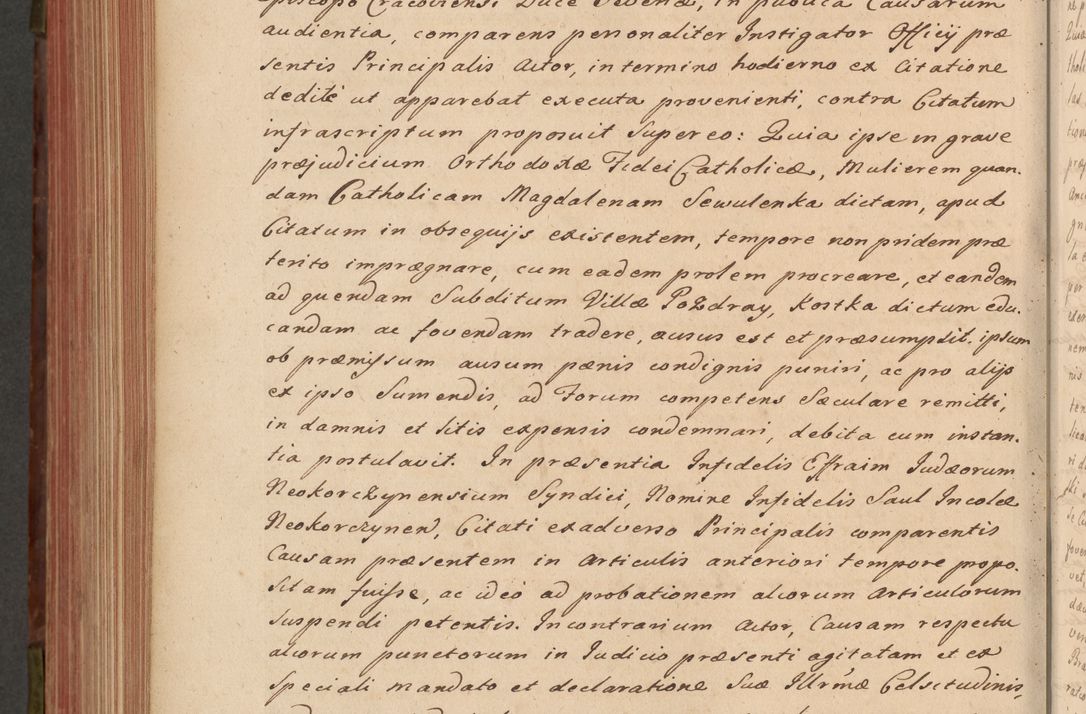 Episcopo Cracoviensi Duce Severiæ, in publica Causarum
audientia, comparens personaliter Instigator Officij præ
sentis Principalis Actor, in termino hodierno ex Citatione
dedite ut apparebat executa provenienti, contra Citatum
infrascriptum proposuit super eo: Quia ipse in grave
præjudicium Orthodoxæ Fidei Catholicæ, Mulierem quan.
dam Catholicam Magdalenam Sewulenka dictam, apud
Citatum in obsequijs existentem, tempore non pridem præ
terito imprægnare, cum eadem prolem procreare, et eandem
ad quendam Subditum Villæ Pozdray, Kostka dictum edu.
candam ac fovendam tradere, ausus est et præsumpsit. ipsum
ob præmissum ausum pænis condignis puniri, ac pro alijs
ex ipso Sumendis, ad Forum competens Sæculare remitti,
in damnis et litis expensis condemnari, debita cum instan.
tia postulavit. In præsentia Infidelis Effraim Judæorum
Neokorczynensium Syndici, Nomine Infidelis Saul Incolæ
Neokorczynen, Citati ex adverso Principalis comparentis
Causam præsentem in Articulis anteriori tempore propo.
sitam fuisse, ac ideo ad probationem alcorum Articulorum
suspendi petentis. In contrarium Actor, Causam respectu
alcorum punctorum in Judicio præsenti agitatam et ex
speciali mandato et declaratione Suæ Illrmæ Celsitudinis,